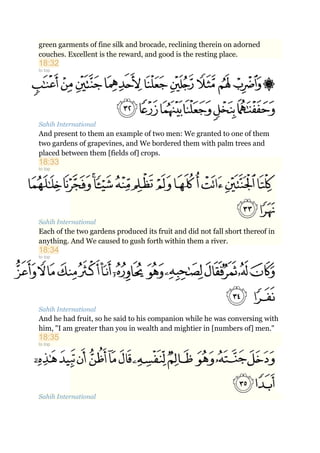 green garments of fine silk and brocade, reclining therein on adorned
couches. Excellent is the reward, and good is the resting place.
18:32
to top
۞ وَٱضْرِبْ لَهُم مَّثَلًا رَّجُلَيْنِ جَعَلْنَا لِأَحَدِهِمَا جَنَّتَيْنِ مِنْ أَعْنَـٰبٍ
وَحَفَفْنَـٰهُمَا بِنَخْلٍ وَجَعَلْنَا بَيْنَهُمَا زَرْعًا ٣٢
Sahih International
And present to them an example of two men: We granted to one of them
two gardens of grapevines, and We bordered them with palm trees and
placed between them [fields of] crops.
18:33
to top
كِلْتَا ٱلْجَنَّتَيْنِ ءَاتَتْ أُكُلَهَا وَلَمْ تَظْلِم مِّنْهُ شَيْـًٔا ۚ وَفَجَّرْنَا خِلَـٰلَهُمَا
نَهَرًا ٣٣
Sahih International
Each of the two gardens produced its fruit and did not fall short thereof in
anything. And We caused to gush forth within them a river.
18:34
to top
وَكَانَ لَهُۥ ثَمَرٌ فَقَالَ لِصَـٰحِبِهِۦ وَهُوَ يُحَاوِرُهُۥٓ أَنَا۠ أَكْثَرُ مِنكَ مَالًا وَأَعَزُّ
نَفَرًا ٣٤
Sahih International
And he had fruit, so he said to his companion while he was conversing with
him, "I am greater than you in wealth and mightier in [numbers of] men."
18:35
to top
وَدَخَلَ جَنَّتَهُۥ وَهُوَ ظَالِمٌ لِّنَفْسِهِۦ قَالَ مَآ أَظُنُّ أَن تَبِيدَ هَـٰذِهِۦٓ
أَبَدًا ٣٥
Sahih International